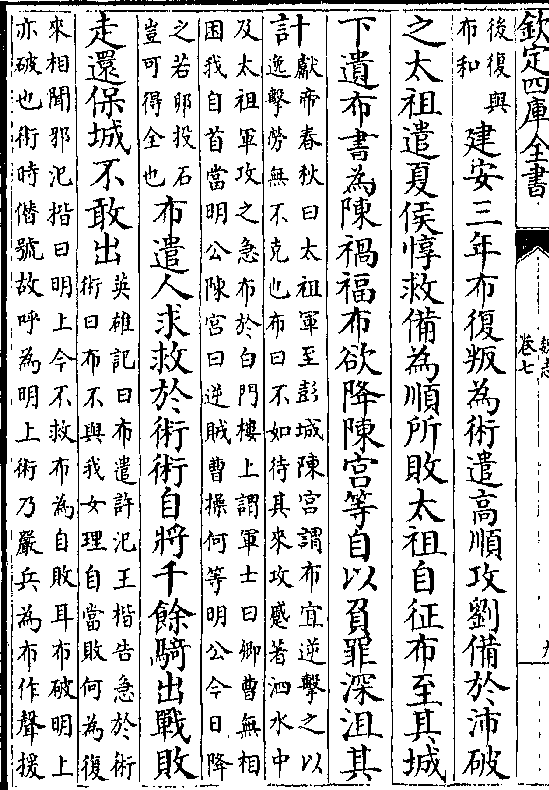 欽定四庫全書
魏志
卷七
後復與
布和
建安三年布復叛為術遣高順攻劉備於沛破
之太祖遣夏侯惇救備為順所敗太祖自征布至其城
下遺布書為陳禍福布欲降陳宫等自以負罪深沮其
計
獻帝春秋曰太祖軍至彭城陳宫謂布宜逆擊之以
逸擊勞無不克也布曰不如待其來攻蹙著泗水中
及太祖軍攻之急布於白門樓上謂軍士曰卿曹無相
困我自首當明公陳宫曰逆賊曹操何等明公今日降
之若卵投石
豈可得全也
布遣人求救於術術自將千餘騎出戰敗
走還保城不敢出
英雄記曰布遣許汜王楷告急於術
術曰布不與我女理自當敗何為復
來相聞邪汜楷曰明上今不救布為自敗耳布破明上
亦破也術時僭號故呼為明上術乃嚴兵為布作聲援